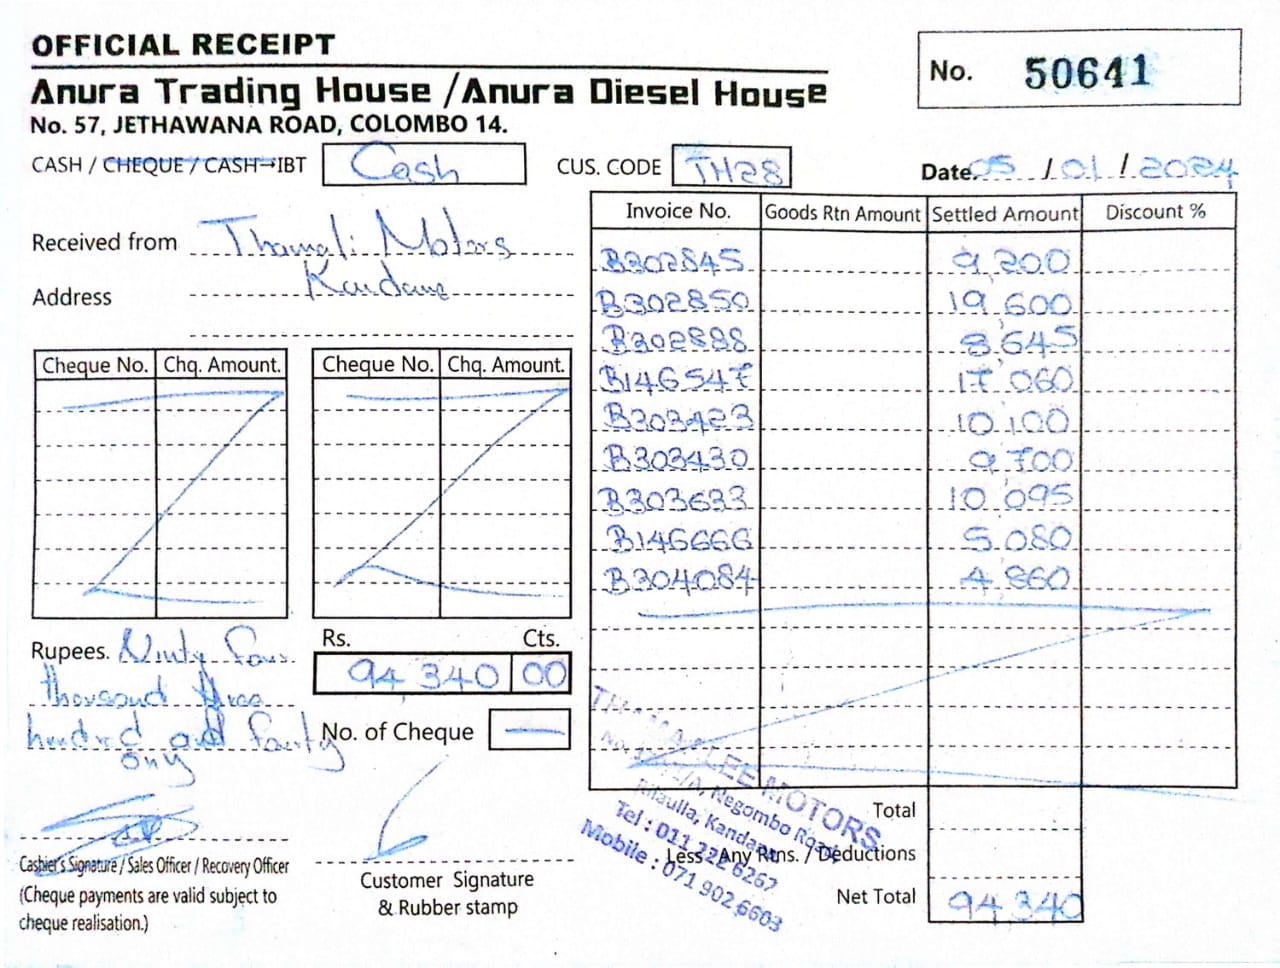 OFFICIAL RECEIPT
No. 50641
Anura Trading House / Anura Diesel House
No. 57, JETHAWANA ROAD, COLOMBO 14.
CASH / CHEQUE / CASH→IBT Cash CUS. CODE TH28 Date. 05 / 01 / 2024
Received from Thamali Motors
Address Kandana
Invoice No. Goods Rtn Amount Settled Amount Discount %
B302845 9,200
B302850 19,600
B302888 8,645
B146547 17,060
B303423 10,100
B303430 9,700
B303633 10,095
B146666 5,080
B304084 4,860
Cheque No. Chq. Amount. Cheque No. Chq. Amount.
Rupees. Ninty four
thousand three
hundred and fourty
only
Rs. Cts.
94,340 00
No. of Cheque —
THAMALEE MOTORS
Negombo Road,
Kandana
Tel : 011 222 6267
Mobile : 071 902 6603
Total
Less : Any Rtns. / Deductions
Net Total 94,340
Cashier's Signature / Sales Officer / Recovery Officer
(Cheque payments are valid subject to
cheque realisation.)
Customer Signature
& Rubber stamp